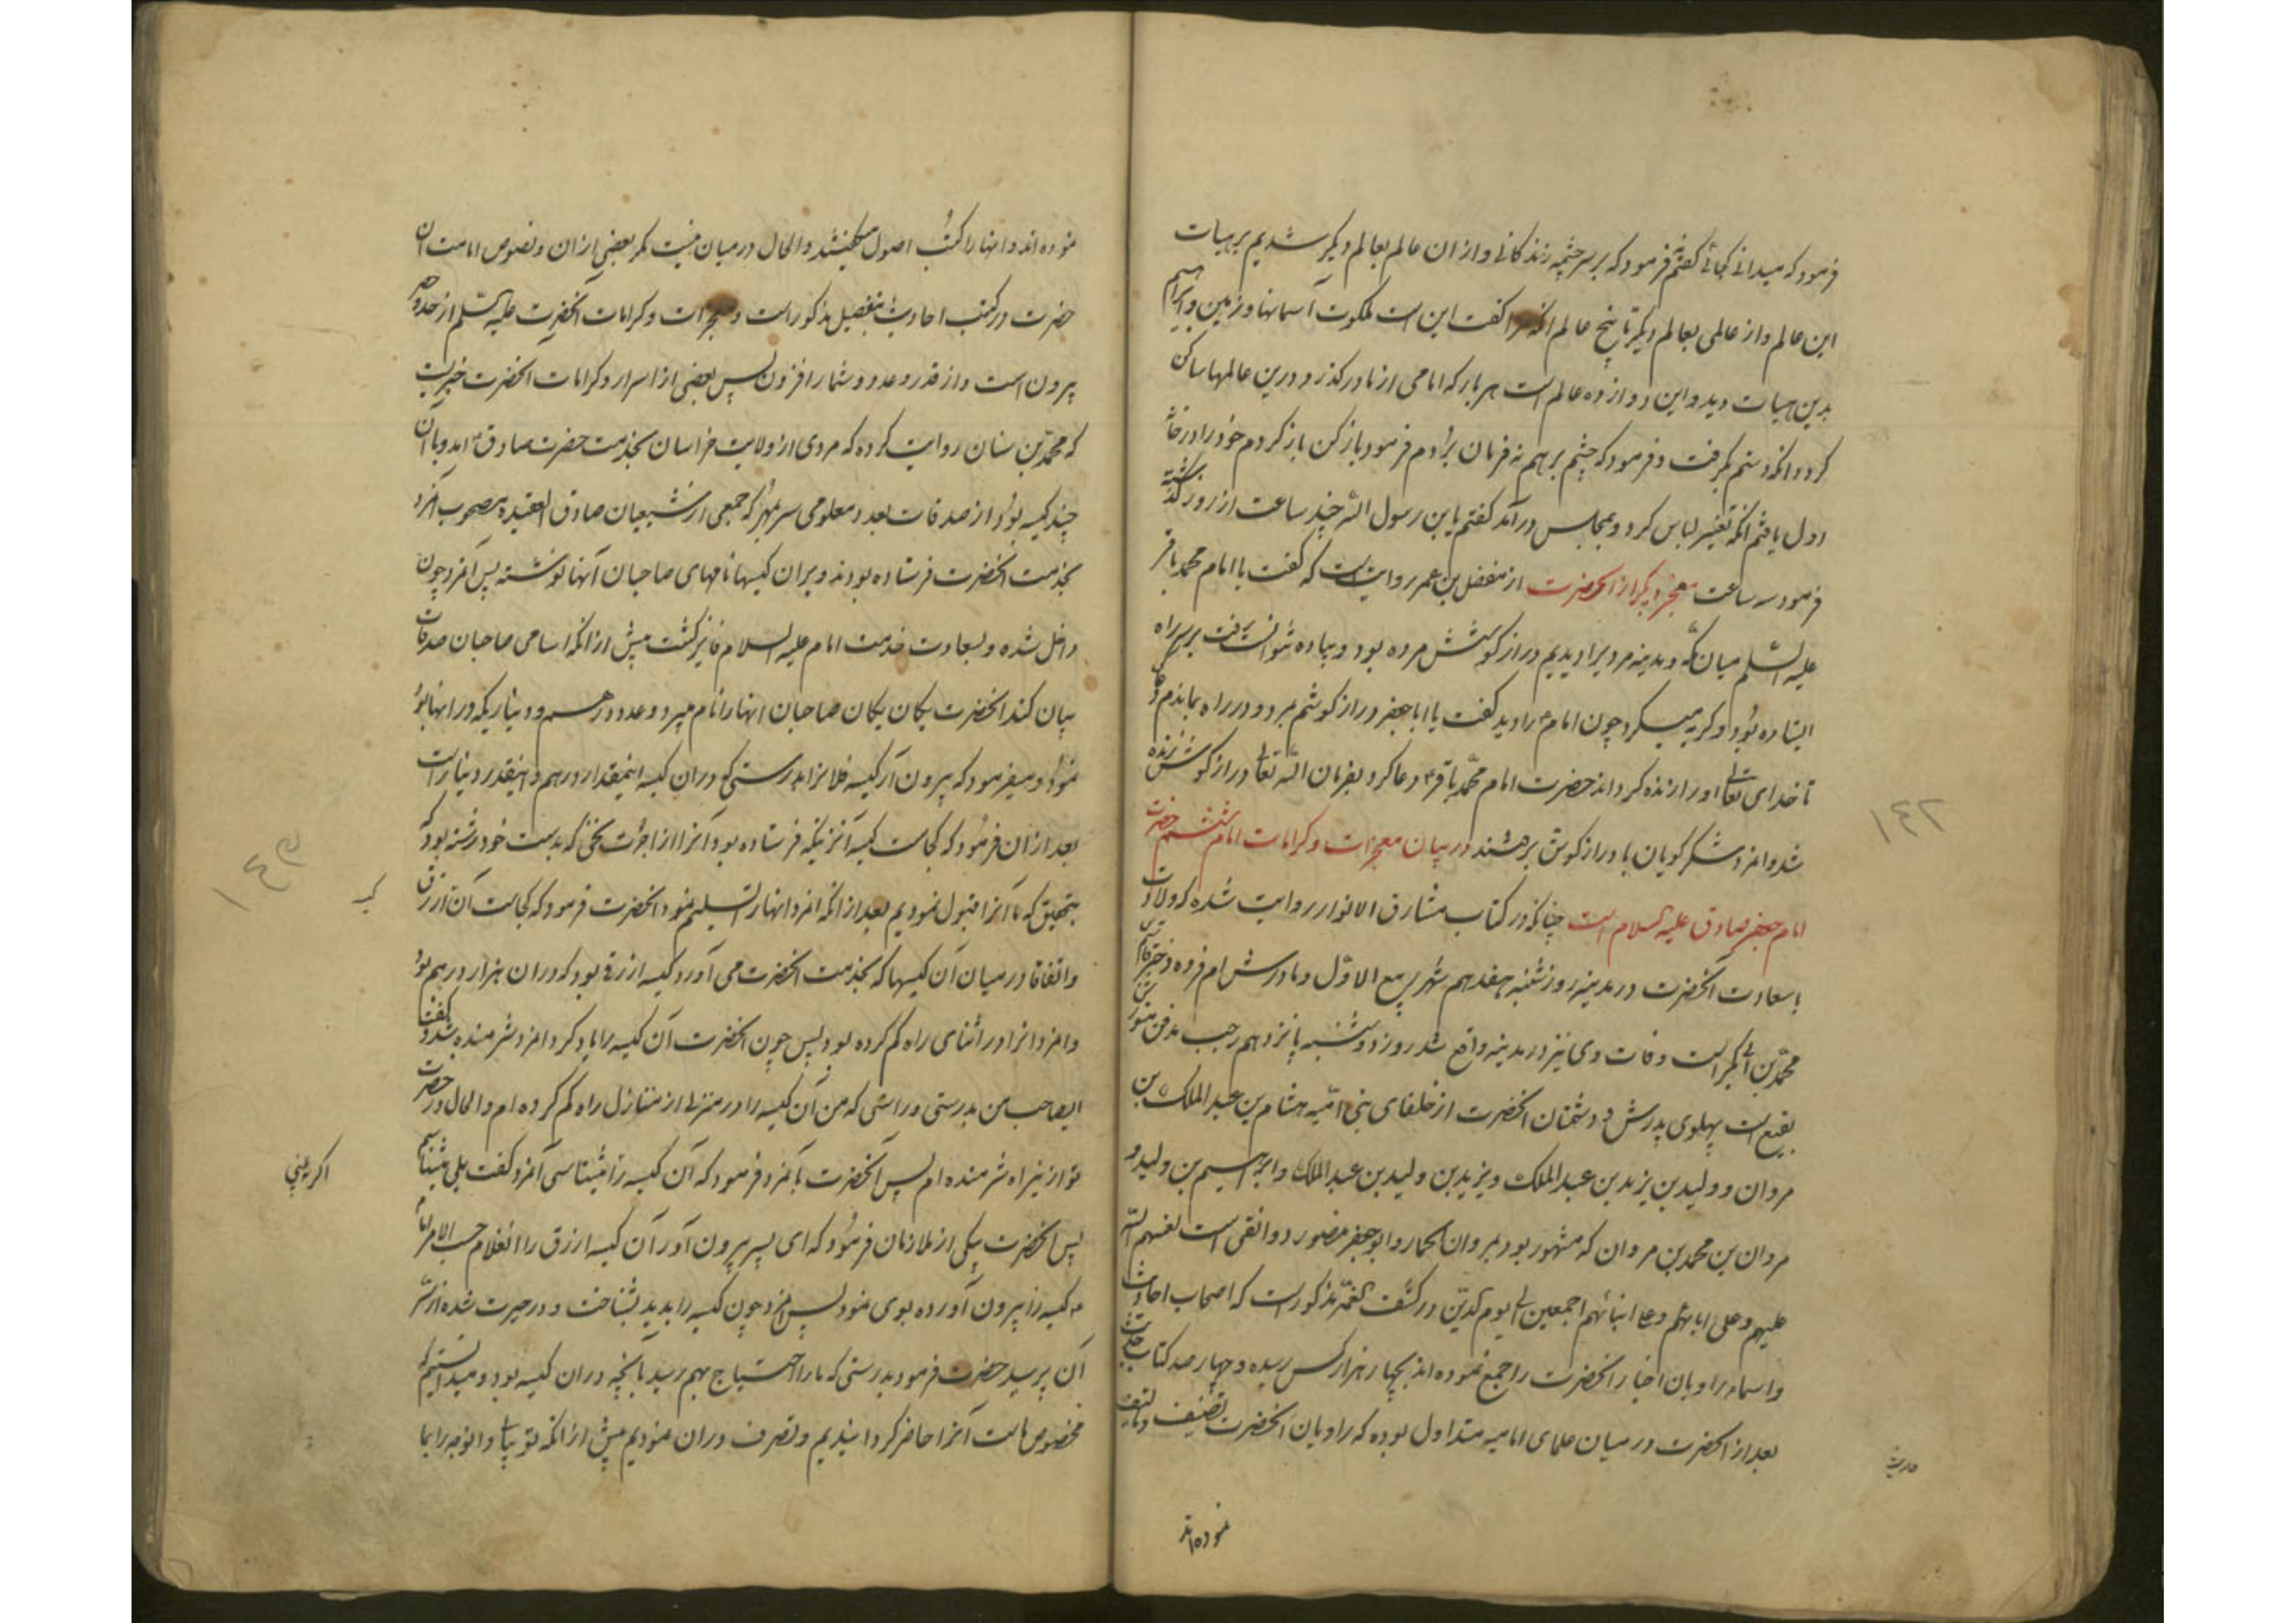 فرمود که میدانی کجائی گفتم نه فرمود که بر سر چشمه زندکانی و از ان عالم بعالم دیکر شدیم بر هیات
این عالم و از عالمی بعالم دیکر تا پنج عالم انکه مرا کفت این است ملکوت آسمانها و زمین و ابراهیم
بدین هیات دید و این دوازده عالم است هر بار که امامی از ما در کذرد درین عالمها ساکن
کردد انکه دستم بکرفت و فرمود که چشم بر هم نه فرمان بردم فرمود باز کن باز کردم خود را در خانه
اول یافتم انکه تغییر لباس کرد و بمجلس در آمد کفتم یابن رسول الله چند ساعت از روز کذشته
فرمود سه ساعت معجز دیکر از انحضرت از مفضل بن عمر روایت است که کفت با امام محمد باقر
علیه السلم میان مکه و مدینه مردیرا دیدیم دراز کوشش مرده بود و پیاده نتوانست رفت بر سر راه
ایستاده بود و کریه میکرد چون امام را دید کفت یا ابا جعفر دراز کوشم بمرد و در راه بماندم دعا کن
تا خدای تعالی او را زنده کرداند حضرت امام محمد باقر دعا کرد بفرمان الله تعالی دراز کوشش زنده
شد و انمرد شکر کویان با دراز کوش برفتند در بیان معجزات و کرامات امام ششم حضرت
امام جعفر صادق علیه السلام است چنانکه در کتاب مشارق الانوار روایت شده که ولادت
با سعادت انحضرت در مدینه روز شنبه هفدهم شهر ربیع الاول و مادرش ام فروه دختر قاسم بن
محمد بن ابی بکر است وفات وی نیز در مدینه واقع شد روز دوشنبه پانزدهم رجب مدفن منورش
بقیع است پهلوی پدرش و دشمنان انحضرت از خلفای بنی امیه هشام بن عبد الملک بن
مروان و ولید بن یزید بن عبد الملک و یزید بن ولید بن عبد الملک و ابراهیم بن ولید و
مروان بن محمد بن مروان که مشهور بود بمروان الحمار و ابو جعفر منصور دوانقی است لعنهم الله
علیهم و علی ابائهم و علی ابنائهم اجمعین الی یوم الدین در کشف الغمه مذکور است که اصحاب احادیث
و اسماء راویان اخبار انحضرت را جمع نموده اند بچهار هزار کس رسیده و چهار صد کتاب حدیث
بعد از انحضرت در میان علمای امامیه متداول بوده که راویان انحضرت تصنیف و تالیف
نموده اند
حدیث
۱۴۲
نموده اند و انها را کتب اصول میکفتند و الحال در میان نیست مکر بعضی از ان و نصوص امامت آن
حضرت در کتب احادیث بتفصیل مذکور است و معجزات و کرامات انحضرت علیه السلم از حد و حصر
بیرون است و از قدر و عدد و شمار افزون پس بعضی از اسرار و کرامات انحضرت خبریست
که محمد بن سنان روایت کرده که مردی از ولایت خراسان بخدمت حضرت صادق امد و با آن
چند کیسه بود از صدقات بعدد معلومی سر بمهر که جمعی از شیعیان صادق العقیده مصحوب انمرد
بخدمت انحضرت فرستاده بودند و بران کیسها نامهای صاحبان آنها نوشته پس آنمرد چون
داخل شده و بسعادت خدمت امام علیه السلام فایز کشت پیش از انکه اسامی صاحبان صدقات
بیان کند انحضرت یکان یکان صاحبان انها را نام میبرد و عدد درهم و دیناریکه در انها بود
نمود و میفرمود که بیرون آر کیسه فلانرا بدرستی که دران کیسه اینمقدار درهم و اینقدر دینار است
بعد از ان فرمود که کجاست کیسه آنزنیکه فرستاده بود آنرا از اجرت نخی که بدست خود رشته بود
بتحقیق که ما آنرا قبول نمودیم بعد از انکه انمرد انها را تسلیم نمود انحضرت فرمود که کجاست آن ازرق
و اتفاقا در میان آن کیسها که بخدمت انحضرت می آورد کیسه ازرقی بود که دران هزار درهم بود
و انمرد انرا در اثنای راه کم کرده بود پس چون انحضرت آن کیسه را یاد کرد انمرد شرمنده شد و کفت
ایصاحب من بدرستی و راستی که من آن کیسه را در منزلی از منازل راه کم کرده ام و الحال در حضرت
تو ازینراه شرمنده ام پس آنحضرت بآنمرد فرمود که آن کیسه را میشناسی آنمرد کفت بلی میشناسم
پس انحضرت بیکی از ملازمان فرمود که ای پسر بیرون آور آن کیسه ازرق را انغلام حسب الامر امام
کیسه را بیرون آورده بوی نمود پس انمرد چون کیسه را بدید بشناخت و در حیرت شده از سر
آن پرسید حضرت فرمود بدرستی که ما را احتیاج بهم رسید بآنچه دران کیسه بود و میدانستیم که
مخصوص ماست آنرا حاضر کردانیدیم و تصرف دران نمودیم پیش از انکه تو بیائی و انوجه را بما
اکر به بینی